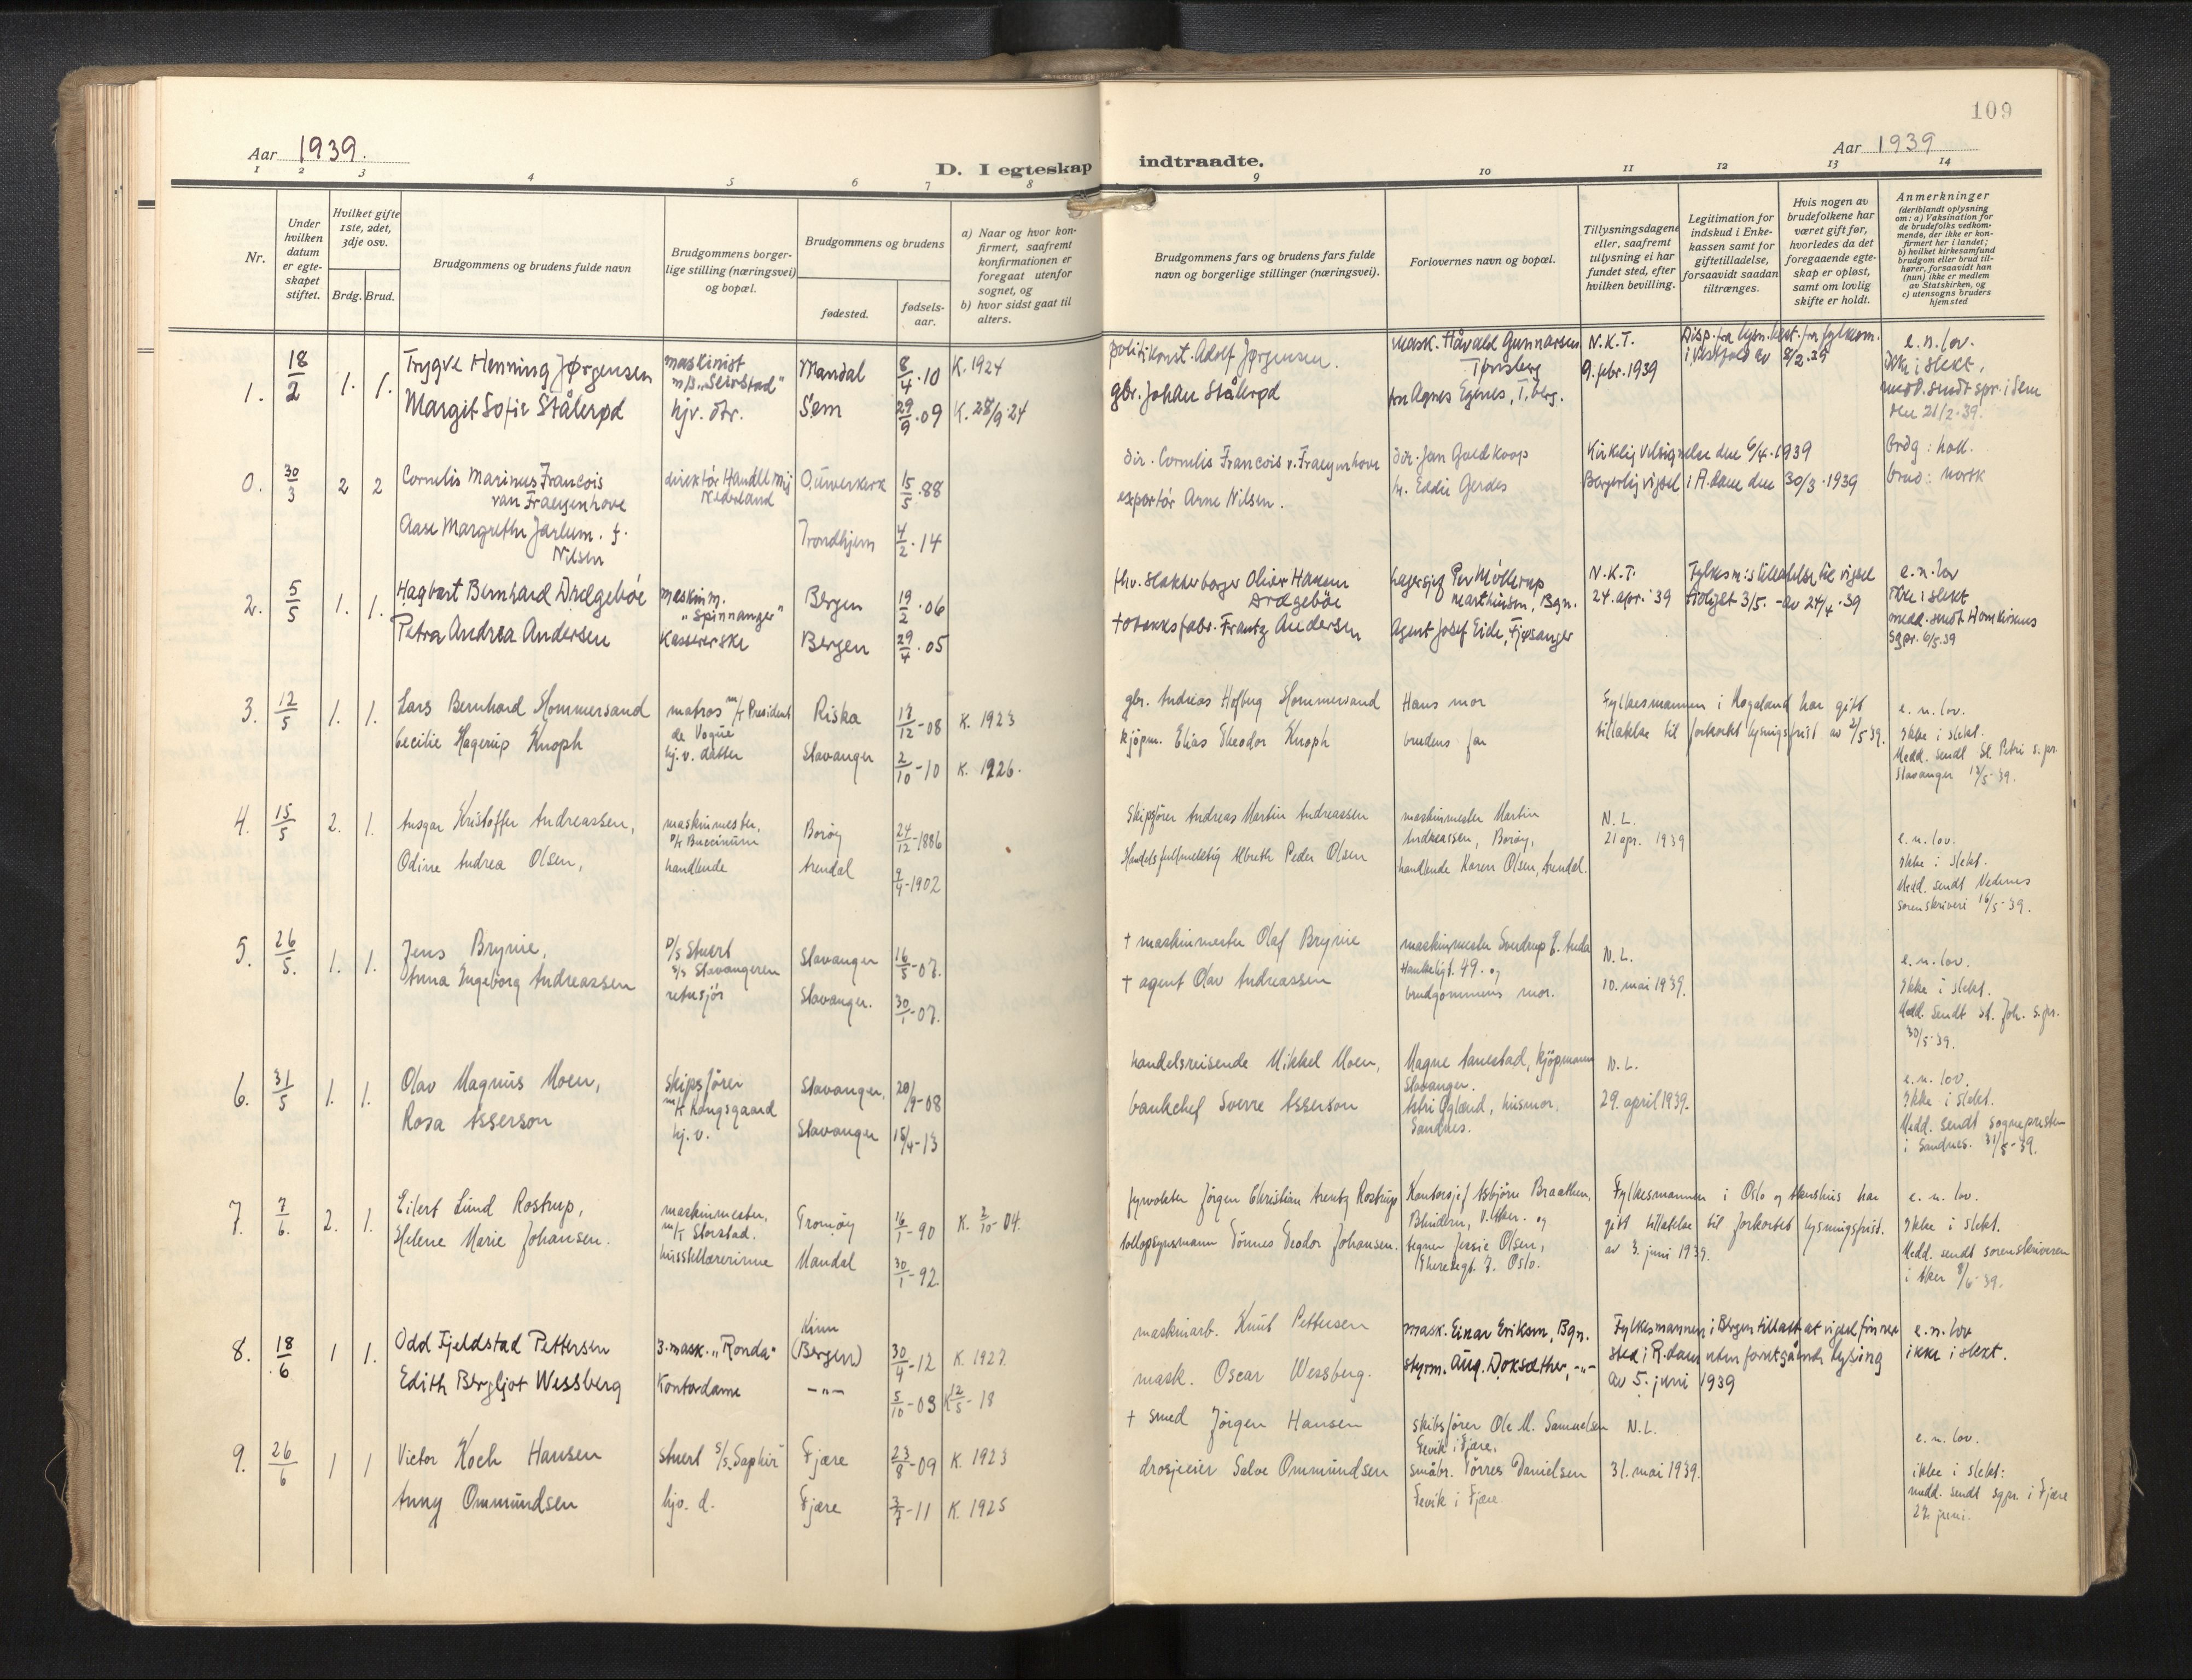 109
Aar 1939.
Aar 1939
D. I egteskap indtraadte.
1 2 3 4 5 6 7 8 9 10 11 12 13 14
Nr.
Under hvilken datum er egteskapet stiftet.
Hvilket gifte 1ste, 2det, 3dje osv.
Brdg. Brud.
Brudgommens og brudens fulde navn
Brudgommens borgerlige stilling (næringsvei) og bopæl.
Brudgommens og brudens
fødested.
fødselsaar.
a) Naar og hvor konfirmert, saafremt konfirmationen er foregaat utenfor sognet, og
b) hvor sidst gaat til alters.
Brudgommens fars og brudens fars fulde navn og borgerlige stillinger (næringsvei).
Forlovernes navn og bopæl.
Tillysningsdagene eller, saafremt tillysning ei har fundet sted, efter hvilken bevilling.
Legitimation for indskud i Enkekassen samt for giftetilladelse, forsaavidt saadan tiltrænges.
Hvis nogen av brudefolkene har været gift før, hvorledes da det foregaaende egteskap er opløst, samt om lovlig skifte er holdt.
Anmerkninger
(deriblandt oplysning om: a) Vaksination for de brudefolks vedkommende, der ikke er konfirmert her i landet; b) hvilket kirkesamfund brudgom eller brud tilhører, forsaavidt han (hun) ikke er medlem av Statskirken, og c) utensogns bruders hjemsted
1. 18/2 1. 1. Trygve Henning Jørgensen maskinist Mandal 8/4.10 K. 1924
Margit Sofie Stålerød hjv. dtr. Sem 29/9.09 K. 28/9.24
politikonst. Adolf Jørgensen. mask. Håvald Gunnarsen Tønsberg N.K.T. 9. febr. 1939
i Vestfold av 8/2.39 e.n.lov.
gbr. Johan Stålerød fru Agnes Egenes, T.berg. Ikke i slekt.
medd. sendt spr. i Sem den 21/2-39.
0. 30/3 2 2 Cornelis Marinus Francois van Fraeyenhove direktør Handel Mij Nederland Ouwerkerk 15/5.88
Aase Margrethe Jarlum. f. Nilsen Trondhjem 4/2.14
dir. Cornelis Francois v. Fraeyenhove dir. Jan Goedkoop Kirkelig velsignelse den 6/4.1939 brdg: holl.
eksportør Arne Nilsen. hr. Eddie Gerdes Borgerlig vigsel i A.dam den 30/3.1939 brud: norsk
2. 5/5 1. 1. Hagbart Bernhard Dredgebøe maskinm. "Spinnanger" Bergen 19/2.06
Petra Andrea Andersen Kassererske Bergen 29/4.05
fhv. slakterborger Oliver Hansen Dredgebøe lagersjef Per Møllerup Marthinsen, Bgn. N.K.T. 24. apr. '39
Fylkesm:s tillatelse til vigsel tidligst 3/5. - av 24/4.39 e.n.lov
† tobakksfabr. Frantz Andersen Agent Josef Eide, Fjøsanger Ikke i slekt
medd. sendt Domkirkens sgpr. 6/5.39
3. 12/5 1. 1. Lars Bernhard Hommersand matros m/t President de Vogüe Riska 17/12-08 K. 1923
Cecilie Hagerup Knoph hj.v. datter Stavanger 2/10-10 K. 1926.
gbr. Andreas Hofbug Hommersand Hans mor Fylkesmannen i Rogaland har gitt e. n. lov.
kjøpm. Elias Theodor Knoph brudens far tillatelse til forkortet lysningsfrist av 2/5 39. Ikke i slekt.
Medd. sendt St. Petri s.pr. Stavanger 13/5-39.
4. 15/5 2. 1. Ansgar Kristoffer Andreassen, maskinmester, D/t Buccinum Borøy 24/12-1886
Odine Andrea Olsen, handlende Arendal 9/4-1902
Skipsfører Andreas Martin Andreassen maskinmester Martin Andreassen, Borøy, N.L. 21 apr. 1939 e.n. lov.
Handelsfullmektig Albreth Peder Olsen handlende Karen Olsen, Arendal. Ikke i slekt.
Medd. sendt Nedenes sorenskriveri 16/5-39.
5. 26/5. 1. 1. Jens Bryne, Stuert s/s Stavangeren Stavanger 16/5-07.
Anna Ingeborg Andreassen retusjør Stavanger. 30/1-07.
† maskinmester Olaf Bryne maskinmester Sverdrup E. Anda Haukeligt. 49. og N.L. e.n. lov.
† agent Olav Andreassen brudgommens mor. 10. mai 1939. Ikke i slekt.
Medd. sendt St. Joh. s.pr. 30/5-39.
6. 31/5 1. 1. Olav Magnus Moen, skipsfører m/t Kongsgaard Stavanger, 20/9-08
Rosa Asserson hj.v. Stavanger 15/4-13
handelsreisende Mikkel Moen, Magne Aanestad, kjøpmann Stavanger. N.L. e.n. lov.
banksjef Sverre Asserson Astri Øglænd, husmor. Sandnes. 29. april 1939. Ikke i slekt.
Medd. sendt sognepresten i Sandnes. 31/5-39.
7. 7/6. 2. 1. Eilert Lund Rostrup, maskinmester, m/t Storstad. Tromøy 16/1-90 K. 2/10-04.
Helene Marie Johansen. husstellærerinne Mandal 30/1-92
fyrvokter Jørgen Christian Arentz Rostrup Kontorsjef Asbjørn Braathen, Blindern, V. Aker. og Fylkesmannen i Oslo og Akershus har e. n. lov.
tollopsynsmann Tønnes Teodor Johansen. tegner Jessie Olsen, Oslo. gitt tillatelse til forkortet lysningsfrist. av 3. juni 1939. Ikke i slekt.
Medd. sendt sorenskriveren i Aker 8/6-39.
8. 18/6 1 1. Odd Fjeldstad Pettersen 3. mask. "Ronda" Kinn (Bergen) 30/4-12 K. 1927
Edith Bergljot Wessberg Kontordame -"- 5/10-03 K 12/5-18
maskinarb. Knut Pettersen mask. Einar Eriksen, Bgn. Fylkesmannen i Bergen tillatt at vigsel finner e.n.lov
mask. Oscar Wessberg. styrm. Aug. Doksæther, -"- sted i R.dam uten foregående lysing av 5. juni 1939 ikke i slekt.
9. 26/6 1 1 Victor Koch Hansen stuert s/s "Saphir" Fjære 23/8-09 K. 1923
Anny Ommundsen hjv. d. Fjære 3/7-11 K. 1925
† smed Jørgen Hansen skibsfører Ole M. Samuelsen Fevik i Fjære. N.L. e.n. lov.
drosjeeier Salve Ommundsen småbr. Tørres Danielsen Fevik i Fjære 31. mai 1939. ikke i slekt:
medd. sendt sgpr. i Fjære 27 juni.